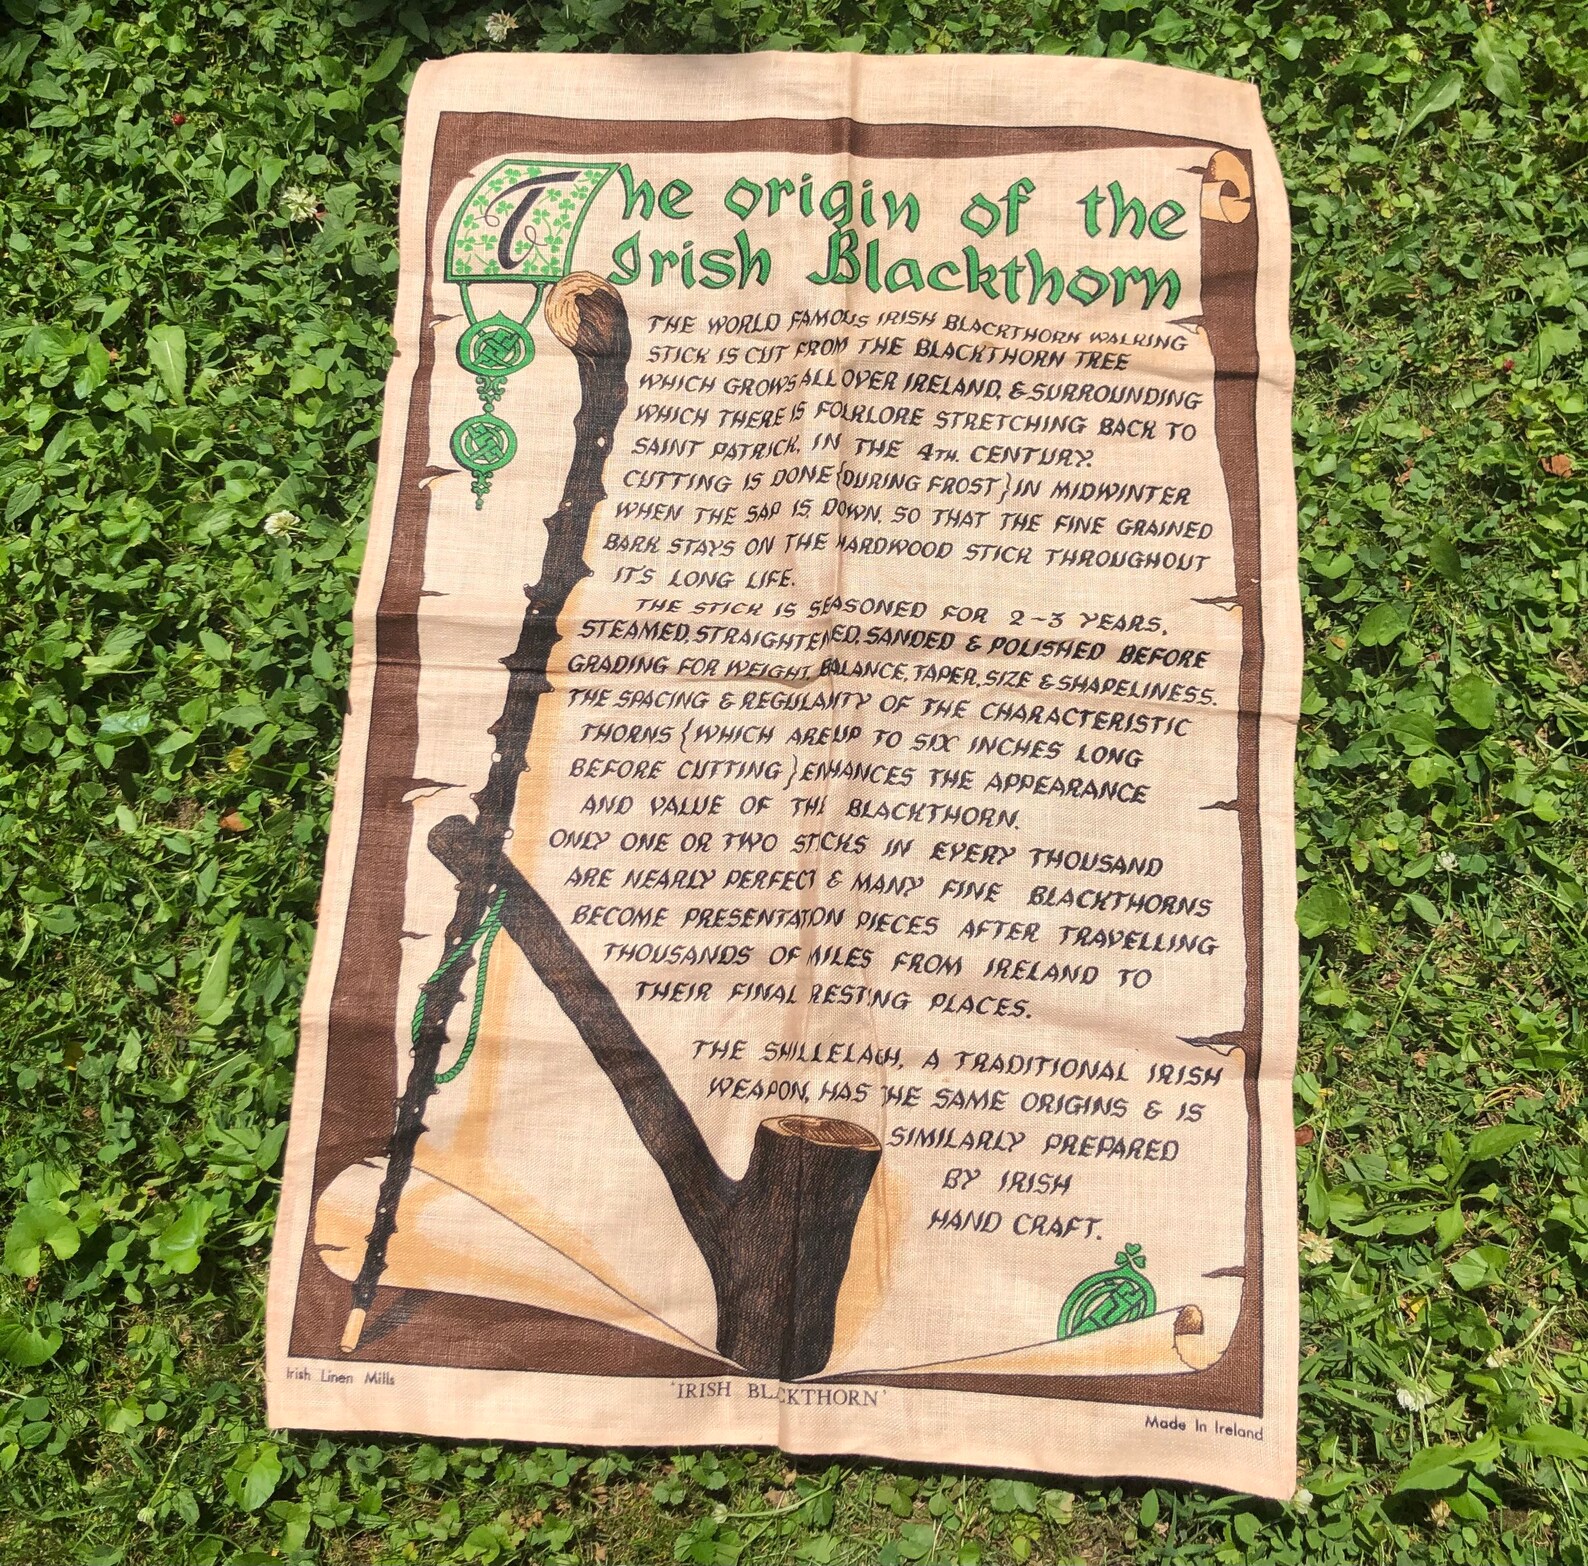 The origin of the
Irish Blackthorn
THE WORLD FAMOUS IRISH BLACKTHORN WALKING
STICK IS CUT FROM THE BLACKTHORN TREE
WHICH GROWS ALL OVER IRELAND, & SURROUNDING
WHICH THERE IS FOLKLORE STRETCHING BACK TO
SAINT PATRICK, IN THE 4TH. CENTURY.
CUTTING IS DONE {DURING FROST} IN MIDWINTER
WHEN THE SAP IS DOWN, SO THAT THE FINE GRAINED
BARK STAYS ON THE HARDWOOD STICK THROUGHOUT
IT'S LONG LIFE.
THE STICK IS SEASONED FOR 2-3 YEARS,
STEAMED, STRAIGHTENED, SANDED & POLISHED BEFORE
GRADING FOR WEIGHT, BALANCE, TAPER, SIZE & SHAPELINESS.
THE SPACING & REGULARITY OF THE CHARACTERISTIC
THORNS {WHICH ARE UP TO SIX INCHES LONG
BEFORE CUTTING} ENHANCES THE APPEARANCE
AND VALUE OF THE BLACKTHORN.
ONLY ONE OR TWO STICKS IN EVERY THOUSAND
ARE NEARLY PERFECT & MANY FINE BLACKTHORNS
BECOME PRESENTATION PIECES AFTER TRAVELLING
THOUSANDS OF MILES FROM IRELAND TO
THEIR FINAL RESTING PLACES.
THE SHILLELAGH, A TRADITIONAL IRISH
WEAPON, HAS THE SAME ORIGINS & IS
SIMILARLY PREPARED
BY IRISH
HAND CRAFT.
Irish Linen Mills
'IRISH BLACKTHORN'
Made In Ireland